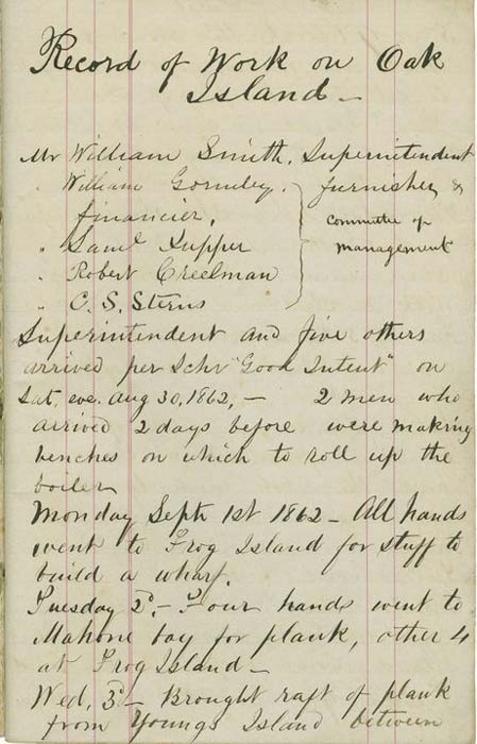 Record of Work on Oak
Island –
Mr William Smith, Superintendent
" William Gormley, furnisher &
financier,
committee of
management
" Saml Kupper
" Robert Creelman
" C. S. Sterns
Superintendent and five others
arrived per Schr "Good Intent" on
Sat. eve. Aug 30, 1862, – 2 men who
arrived 2 days before were making
benches on which to roll up the
boiler
Monday Septr 1st 1862 – All hands
went to Frog Island for stuff to
build a wharf.
Tuesday 2d, – Four hands went to
Mahone bay for plank, other 4
at Frog Island –
Wed, 3d – Brought raft of plank
from Youngs Island between